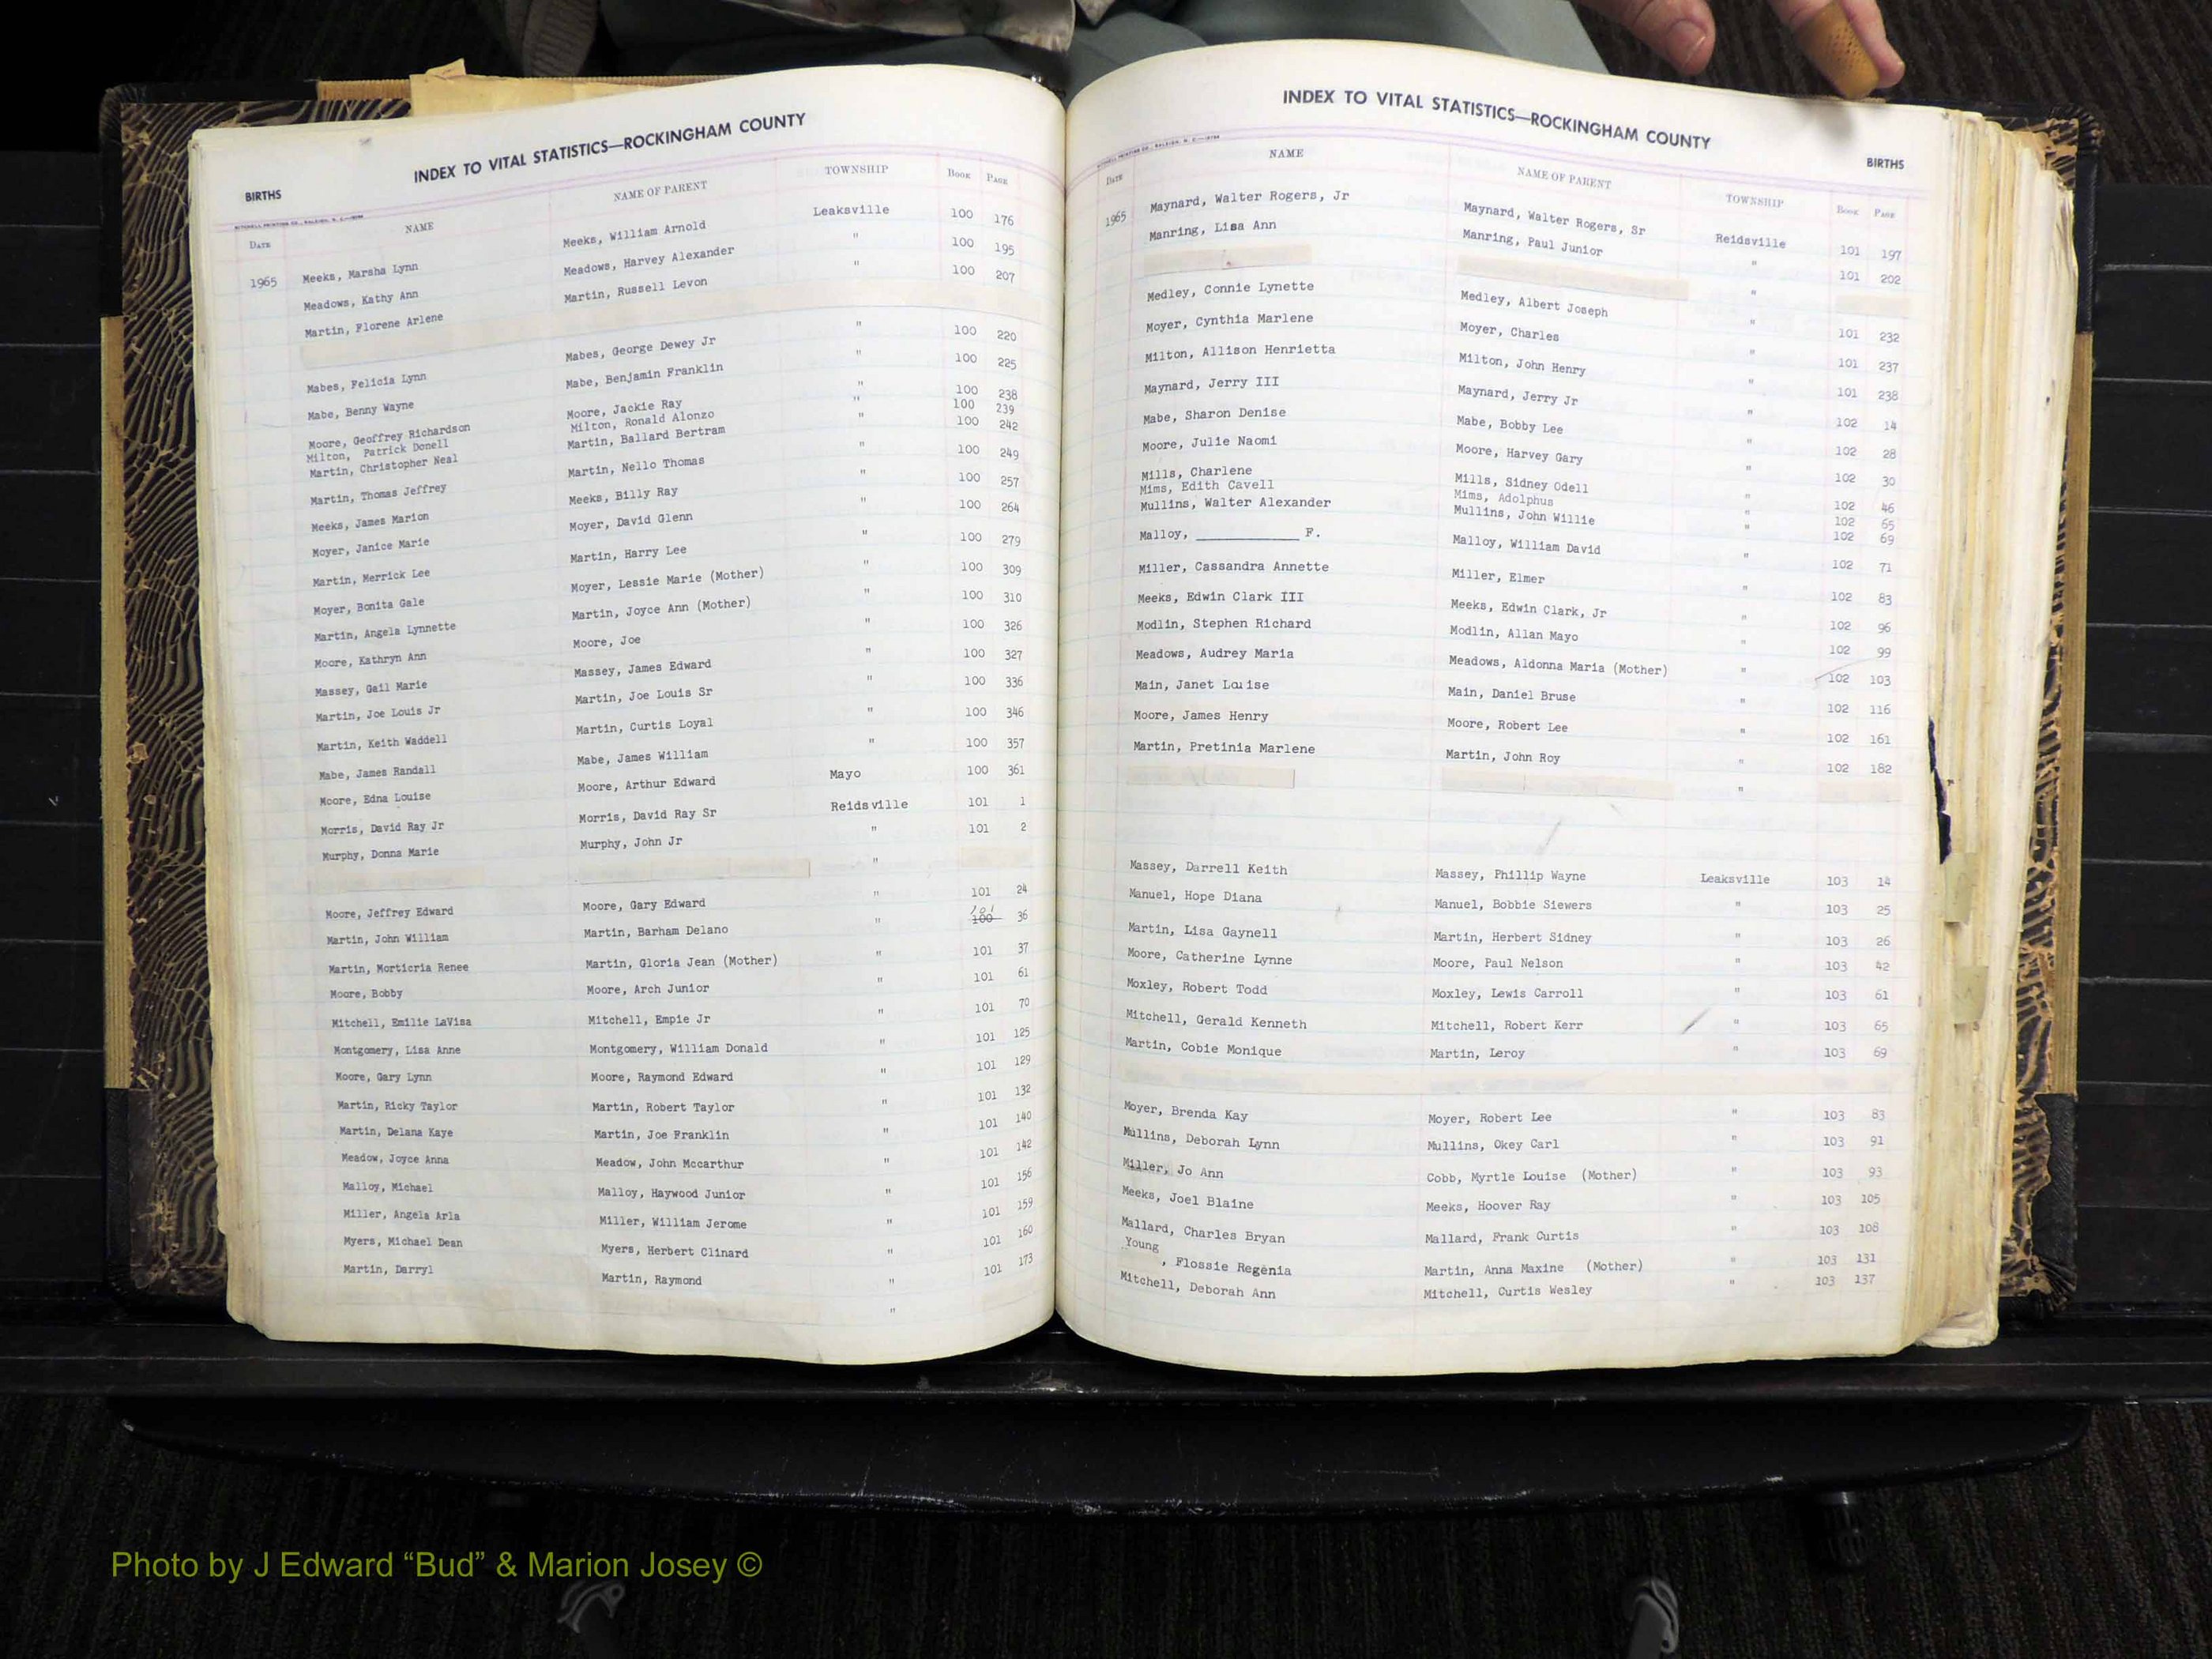 INDEX TO VITAL STATISTICS—ROCKINGHAM COUNTY
BIRTHS
DATE NAME NAME OF PARENT TOWNSHIP BOOK PAGE
1965 Meeks, Marsha Lynn Meeks, William Arnold Leaksville 100 176
Meadows, Kathy Ann Meadows, Harvey Alexander " 100 195
Martin, Florene Arlene Martin, Russell Levon " 100 207
Mabes, Felicia Lynn Mabes, George Dewey Jr " 100 220
Mabe, Benny Wayne Mabe, Benjamin Franklin " 100 225
Moore, Geoffrey Richardson Moore, Jackie Ray " 100 238
Milton, Patrick Donell Milton, Ronald Alonzo " 100 239
Martin, Christopher Neal Martin, Ballard Bertram " 100 242
Martin, Thomas Jeffrey Martin, Nello Thomas " 100 249
Meeks, James Marion Meeks, Billy Ray " 100 257
Moyer, Janice Marie Moyer, David Glenn " 100 264
Martin, Merrick Lee Martin, Harry Lee " 100 279
Moyer, Bonita Gale Moyer, Lessie Marie (Mother) " 100 309
Martin, Angela Lynnette Martin, Joyce Ann (Mother) " 100 310
Moore, Kathryn Ann Moore, Joe " 100 326
Massey, Gail Marie Massey, James Edward " 100 327
Martin, Joe Louis Jr Martin, Joe Louis Sr " 100 336
Martin, Keith Waddell Martin, Curtis Loyal " 100 346
Mabe, James Randall Mabe, James William " 100 357
Moore, Edna Louise Moore, Arthur Edward Mayo 100 361
Morris, David Ray Jr Morris, David Ray Sr Reidsville 101 1
Murphy, Donna Marie Murphy, John Jr " 101 2
"
Moore, Jeffrey Edward Moore, Gary Edward " 101 24
Martin, John William Martin, Barham Delano " 100 101 36
Martin, Morticria Renee Martin, Gloria Jean (Mother) " 101 37
Moore, Bobby Moore, Arch Junior " 101 61
Mitchell, Emilie LaVisa Mitchell, Empie Jr " 101 70
Montgomery, Lisa Anne Montgomery, William Donald " 101 125
Moore, Gary Lynn Moore, Raymond Edward " 101 129
Martin, Ricky Taylor Martin, Robert Taylor " 101 132
Martin, Delana Kaye Martin, Joe Franklin " 101 140
Meadow, Joyce Anna Meadow, John Mccarthur " 101 142
Malloy, Michael Malloy, Haywood Junior " 101 156
Miller, Angela Arla Miller, William Jerome " 101 159
Myers, Michael Dean Myers, Herbert Clinard " 101 160
Martin, Darryl Martin, Raymond " 101 173
"
INDEX TO VITAL STATISTICS—ROCKINGHAM COUNTY
BIRTHS
DATE NAME NAME OF PARENT TOWNSHIP BOOK PAGE
1965 Maynard, Walter Rogers, Jr Maynard, Walter Rogers, Sr Reidsville 101 197
Manring, Lisa Ann Manring, Paul Junior " 101 202
"
Medley, Connie Lynette Medley, Albert Joseph " 101 232
Moyer, Cynthia Marlene Moyer, Charles " 101 237
Milton, Allison Henrietta Milton, John Henry " 101 238
Maynard, Jerry III Maynard, Jerry Jr " 102 14
Mabe, Sharon Denise Mabe, Bobby Lee " 102 28
Moore, Julie Naomi Moore, Harvey Gary " 102 30
Mills, Charlene Mills, Sidney Odell " 102 46
Mims, Edith Cavell Mims, Adolphus " 102 65
Mullins, Walter Alexander Mullins, John Willie " 102 69
Malloy, ____________ F. Malloy, William David " 102 71
Miller, Cassandra Annette Miller, Elmer " 102 83
Meeks, Edwin Clark III Meeks, Edwin Clark, Jr " 102 96
Modlin, Stephen Richard Modlin, Allan Mayo " 102 99
Meadows, Audrey Maria Meadows, Aldonna Maria (Mother) " 102 103
Main, Janet Louise Main, Daniel Bruse " 102 116
Moore, James Henry Moore, Robert Lee " 102 161
Martin, Pretinia Marlene Martin, John Roy " 102 182
"
Massey, Darrell Keith Massey, Phillip Wayne Leaksville 103 14
Manuel, Hope Diana Manuel, Bobbie Siewers " 103 25
Martin, Lisa Gaynell Martin, Herbert Sidney " 103 26
Moore, Catherine Lynne Moore, Paul Nelson " 103 42
Moxley, Robert Todd Moxley, Lewis Carroll " 103 61
Mitchell, Gerald Kenneth Mitchell, Robert Kerr " 103 65
Martin, Cobie Monique Martin, Leroy " 103 69
Moyer, Brenda Kay Moyer, Robert Lee " 103 83
Mullins, Deborah Lynn Mullins, Okey Carl " 103 91
Miller, Jo Ann Cobb, Myrtle Louise (Mother) " 103 93
Meeks, Joel Blaine Meeks, Hoover Ray " 103 105
Mallard, Charles Bryan Mallard, Frank Curtis " 103 108
Young, Flossie Regenia Martin, Anna Maxine (Mother) " 103 131
Mitchell, Deborah Ann Mitchell, Curtis Wesley " 103 137
Photo by J Edward “Bud” & Marion Josey ©